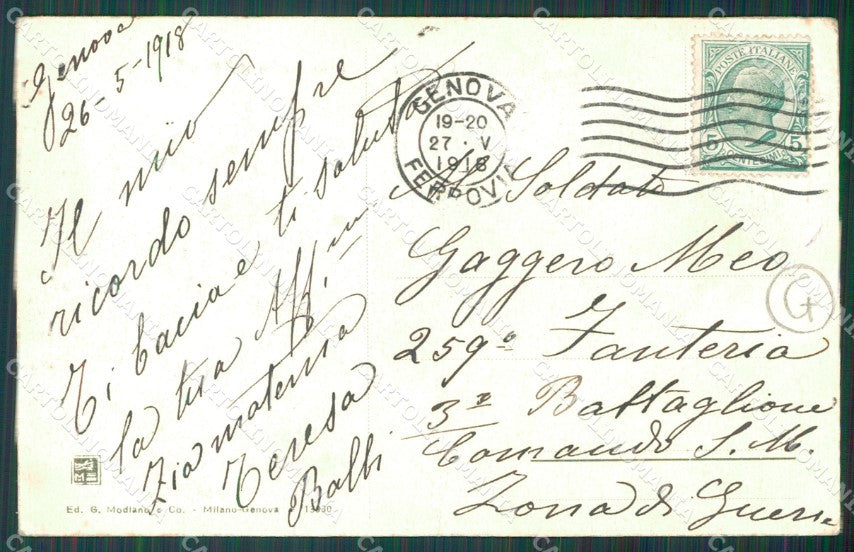 Genova
26-5-1918
Il mio
ricordo sempre
Ti bacia e ti saluta
la tua Aff.ma
Zia materna
Teresa
Balbi
Ed. G. Modiano e Co. - Milano-Genova
GENOVA
19-20
27 · V
1918
FERROVIA
POSTE ITALIANE
5 5
CENTESIMI
Al Soldato
Gaggero Meo
259º Fanteria
3º Battaglione
Comando S. M.
Zona di Guerra
CARTOLINOMANIA